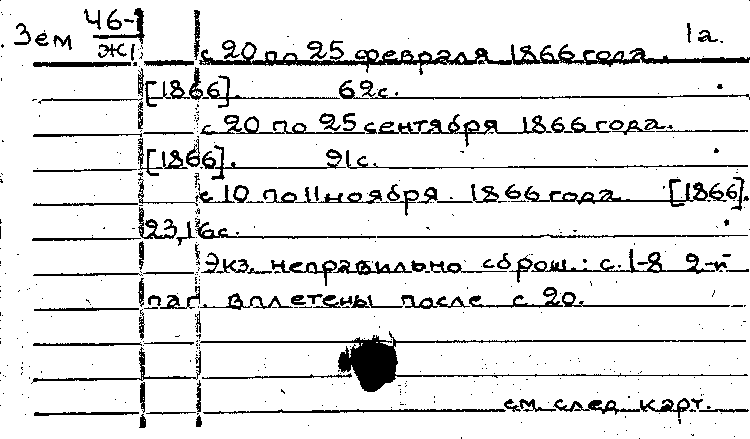 Зем 46-1/Ж1 1а.
с 20 по 25 февраля 1866 года.
[1866]. 62с.
с 20 по 25 сентября 1866 года.
[1866]. 91с.
с 10 по 11 ноября 1866 года. [1866].
23,16с.
Экз. неправильно сброш.: с. 1-8 2-й
паг. вплетены после с 20.
см. след. карт.